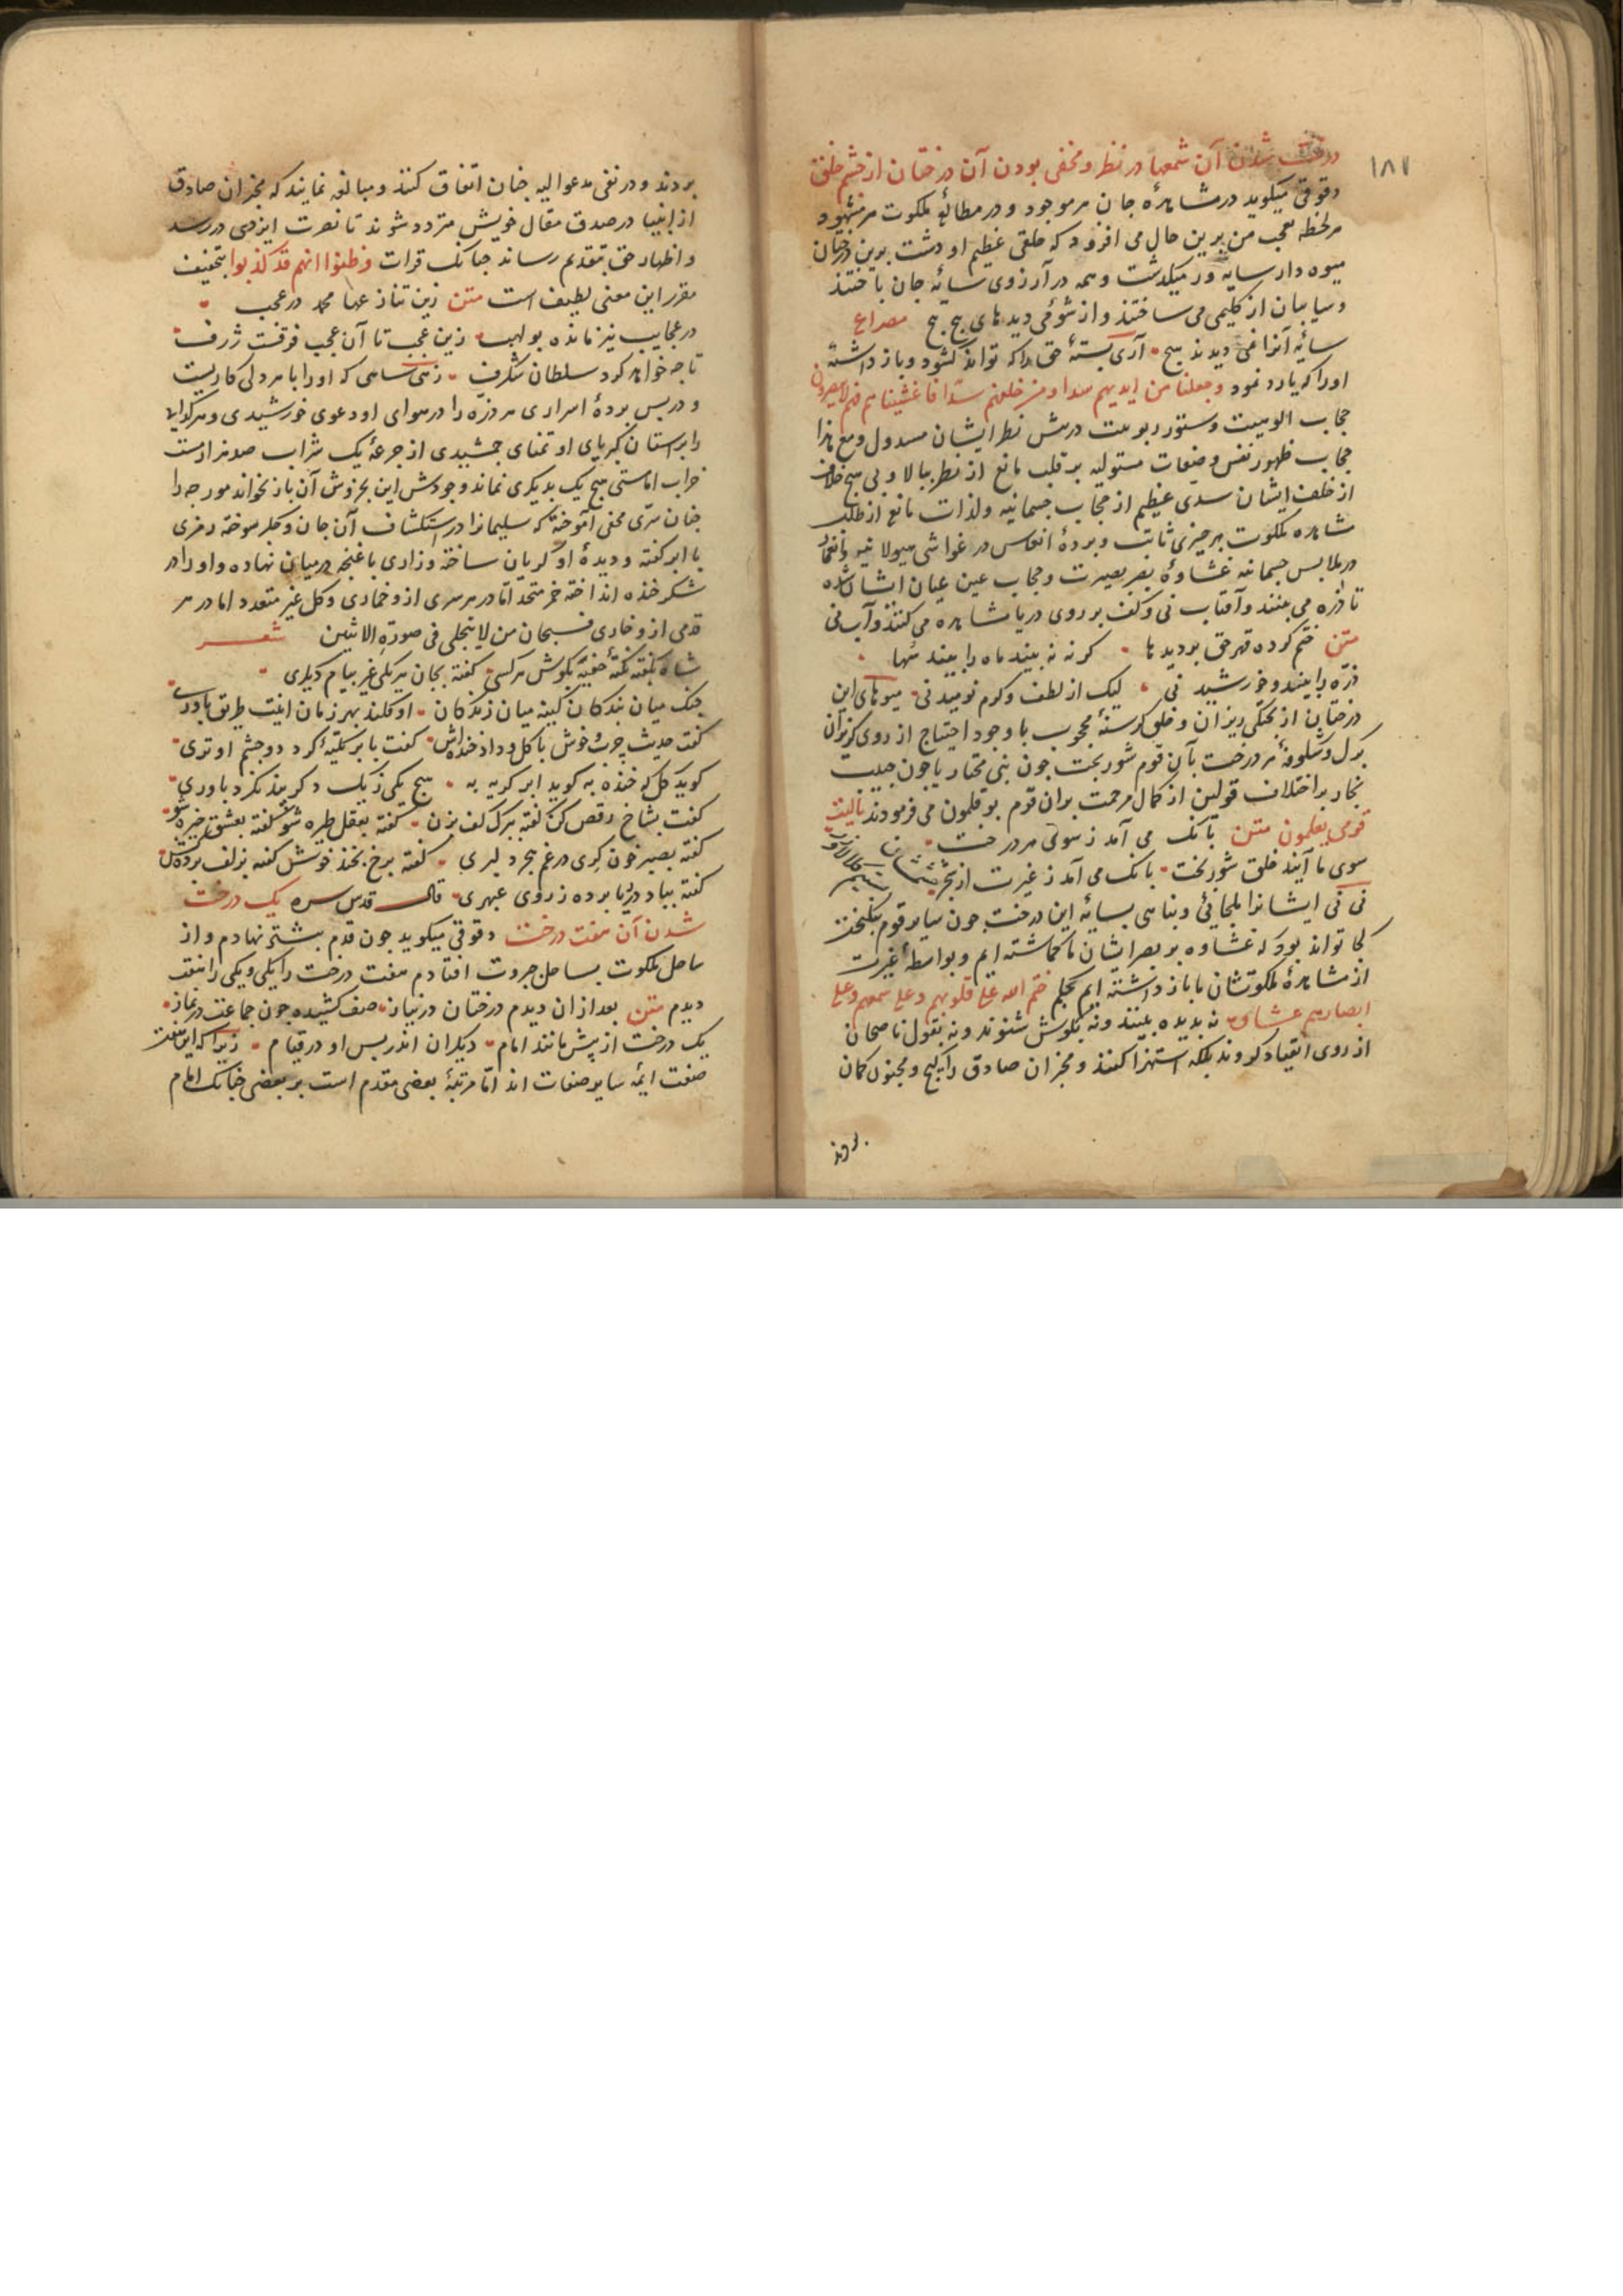 ۱۸۷
درخت شدن آن شمعها در نظر و مخفی بودن آن درختان از چشم خلق
دقوقی میکوید در مشاهدهٔ جان هر موجود و در مطالعهٔ ملکوت هر مشهود
هر لحظه تعجب من برین حال می افزود که خلقی عظیم از دشت برین درختان
میوه دار سایه ور میکذشت و همه در آرزوی سایه جان باختند
و سایبان از کلیمی می ساختند و از شومی دیدهای پیچ پیچ مصراع
سایهٔ آنرا نمی دیدند هیچ آری بستهٔ حق را که تواند کشود و باز داشتهٔ
اورا که یارد نمود وجعلنا من ایدیهم سدا ومن خلفهم سدا فاغشیناهم فهم لایبصرون
حجاب الوهیت و ستور ربوبیت در پیش نظر ایشان مسدول و مع هذا
حجاب ظهور نفس و صفات مستولیه بر قلب مانع از نظر ببالا و بی هیچ خلاف
از خلف ایشان سدی عظیم از حجاب جسمانیه ولذات مانع از طلب
مشاهده ملکوت هر چیزی ثابت و پردهٔ انغماس در غواشی هیولانیه وانغمار
در ملابس جسمانیه غشاوهٔ بصر بصیرت و حجاب عین عیان ایشان شده
تا ذره می بینند و آفتاب نی و کف بر روی دریا مشاهده می کنند و آب نی
متن ختم کرده قهر حق بر دیدها کر نه نه بیند ماه را بیند سها
ذره را بینند و خورشید نی لیک از لطف و کرم نومید نی میوهای این
درختان از پختکی ریزان و خلق کرسنهٔ محجوب با وجود احتیاج از روی کریزان
برک و شکوفهٔ هر درخت بآن قوم شوربخت چون نبی مختار یا چون حبیب
نجار بر اختلاف قولین از کمال مرحمت بران قوم بوقلمون می فرمودند یالیت
قومی یعلمون متن بانک می آمد ز سوی هر درخت
سوی ما آیید خلق شوربخت بانک می آمد ز غیرت از شجر
نی نی ایشانرا ملجائی و پناهی بسایهٔ این درخت چون سایر قوم نیکبخت
کجا تواند بود که غشاوه بر بصر ایشان ما کماشته ایم و بواسطهٔ غیرت
از مشاهدهٔ ملکوتشان ما باز داشته ایم بحکم ختم الله علی قلوبهم وعلی سمعهم وعلی
ابصارهم غشاوة نه بدیده بینند و نه بکوش شنوند و نه بقول ناصحان
از روی انقیاد کروند بلکه استهزا کنند و مخبران صادق را کیج و مجنون کمان
بردند
بردند و در نفی مدعوالیه چنان اتفاق کنند و مبالغه نمایند که مخبران صادق
از انبیا در صدق مقال خویش متردد شوند تا نصرت ایزدی در رسد
و اظهار حق بتقدیم رساند چنانک قرات وظنوا انهم قد کذبوا بتخفیف
مقرر این معنی لطیف است متن زین تنازعها محمد در عجب
در عجایب نیز مانده بولهب زین عجب تا آن عجب فرقیست ژرف
تا چه خواهد کرد سلطان شکرف زهی شاهی که اورا با هر دلی کاریست
و در پس پردهٔ اسراری هر ذره را در هوای او دعوی خورشیدی و هر کدایی
را بر آستان کبریای او تمنای جمشیدی از جرعهٔ یک شراب صد هزار مست
خراب اما مستی هیچ یک بدیکری نماند و جودش این بخروش آن باز نخواند مورچه را
چنان سری مخفی آموخته که سلیمانرا در استکشاف آن جان و جکر سوخته رمزی
با ابر کفته و دیدهٔ او کریان ساخته و رازی با غنچه در میان نهاده و او را در
شکر خنده انداخته خمر متحد اما در هر سری ازو خماری و کل غیر متعدد اما در هر
قدمی ازو خاری فسبحان من لا یتجلی فی صورة الاثنین شعر
شاه نکفته نکتهٔ خفیه بکوش هر کسی کفته بجان هر یکی غیر پیام دیکری
جنک میان بندکان کینه میان زندکان او فکند بهر زمان اینت طریق یاوری
کفت حدیث چرب و خوش با کل و داد خنداش کفت بابر نکتهٔ کرد دو چشم او تری
کوید کل که خنده به کوید ابر کریه به هیچ یکی ز یک دکر پند نکرد باوری
کفت بشاخ رقص کن کفت ببرک کف بزن کفته بعقل طیره شو کفته بعشق خیره شو
کفته بصبر خون کری در غم هجر دلبری کفته برخ بخند خوش کفته بزلف پرده کش
کفته بباد در ربا پرده ز روی عبهری قال قدس سره یک درخت
شدن آن هفت درخت دقوقی میکوید چون قدم پیشتر نهادم و از
ساحل ملکوت بساحل جبروت افتادم هفت درخت را یکی و یکی را هفت
دیدم متن بعد ازان دیدم درختان در نیاز صف کشیده چون جماعت در نماز
یک درخت از پیش مانند امام دیکران اندر پس او در قیام زیرا که این هفت
صفت ایمهٔ سایر صفات اند اما مرتبهٔ بعضی مقدم است بر بعضی چنانک امام